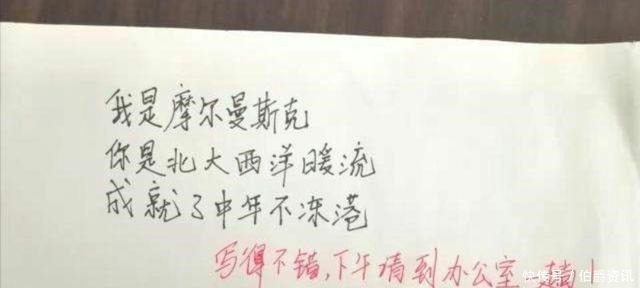 我是摩尔曼斯克
你是北大西洋暖流
成就了中年不冻港
写得不错,下午请到办公室
快传号/伯爵资讯